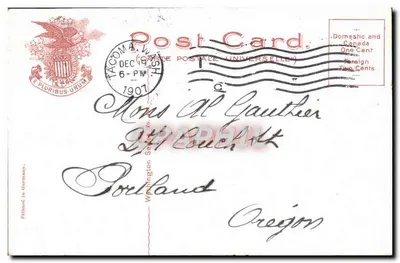 Post Card.
CARTE POSTALE UNIVERSELLE
Domestic and
Canada
One Cent
Foreign
Two Cents
TACOMA, WASH.
DEC 16
6-PM
1907
E PLURIBUS UNUM
Mons Al Gauthier
271 Couch St
Portland
Oregon
Printed in Germany.
Washington